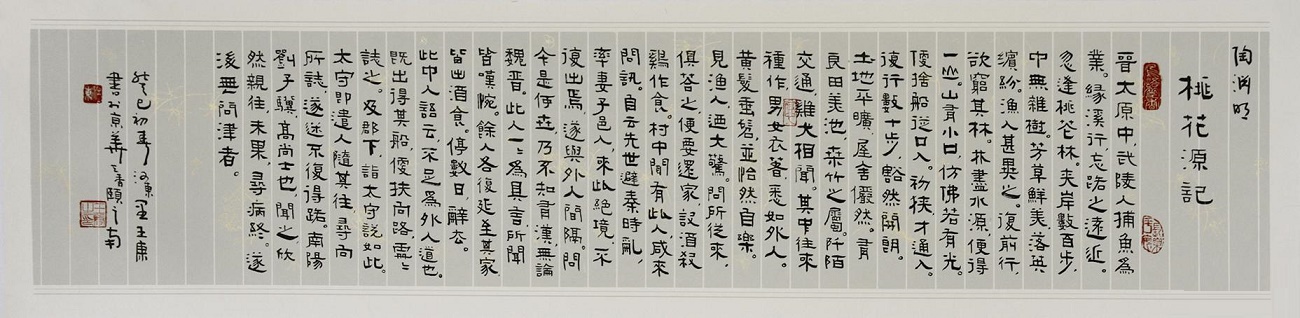 陶渊明
桃花源記
晉太原中，武陵人捕魚為
業。緣溪行，忘路之遠近。
忽逢桃花林，夾岸數百步，
中無雜樹，芳草鮮美，落英
繽紛。漁人甚異之。復前行，
欲窮其林。林盡水源，便得
一山。山有小口，仿佛若有光。
便捨船從口入。初狹，才通人。
復行數十步，豁然開朗。
土地平曠，屋舍儼然。有
良田美池，桑竹之屬。阡陌
交通，雞犬相聞。其中往來
種作，男女衣著，悉如外人。
黃髮垂髫，並怡然自樂。
見漁人，迺大驚。問所從來，
俱答之。便要還家，設酒殺
雞作食。村中聞有此人，咸來
問訊。自云先世避秦時亂，
率妻子邑人，來此絕境，不
復出焉，遂與外人間隔。問
今是何世，乃不知有漢，無論
魏晉。此人一一為具言，所聞
皆嘆惋。餘人各復延至其家
皆出酒食。停數日，辭去。
此中人語云，不足為外人道也。
既出得其船，便扶向路，處處
誌之。及郡下，詣太守說如此。
太守即遣人隨其往，尋向
所誌，遂迷不復得路。南陽
劉子驥，高尚士也，聞之，欣
然親往，未果，尋病終。遂
後無問津者。
癸巳初春河東
書於京華香頤之南